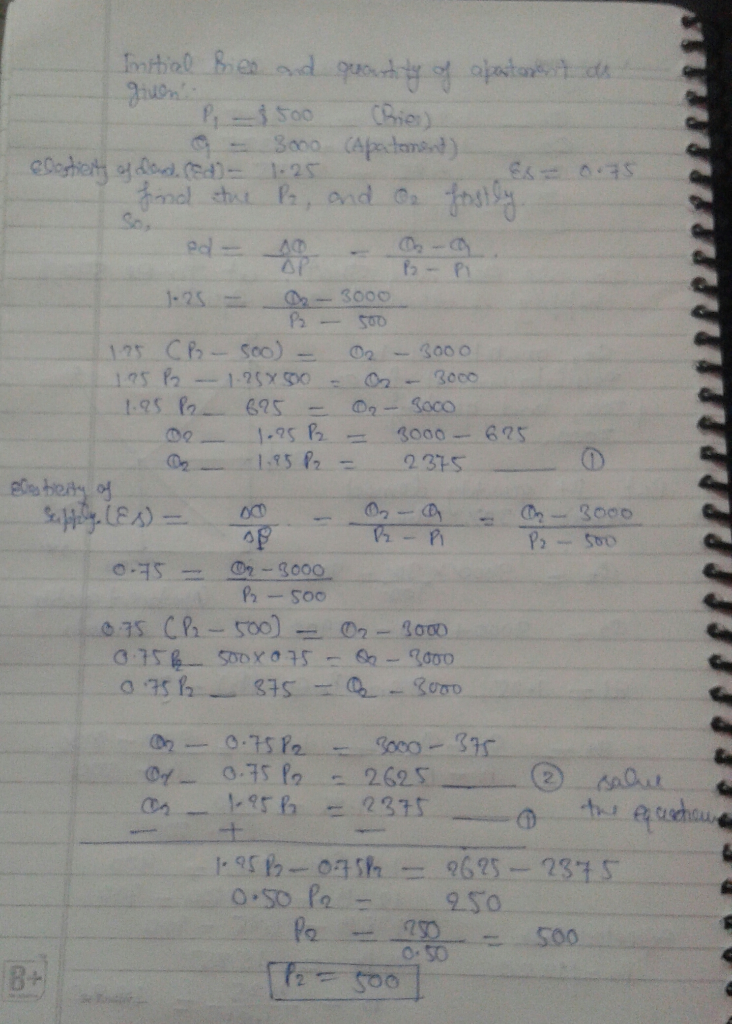 Initial Price and quantity of apatament is
given:
P1 = $500 (Price)
Q = 3000 (Apatament)
Elasticity of Dand. (Ed) = 1.25 Es = 0.75
find the P2, and Q2 firstly
So,
ed = ΔQ/ΔP = Q2 - Q1/P2 - P1.
1.25 = Q2 - 3000/P2 - 500
1.25 (P2 - 500) = Q2 - 3000
1.25 P2 - 1.25 x 500 = Q2 - 3000
1.25 P2 - 625 = Q2 - 3000
Q2 - 1.25 P2 = 3000 - 625
Q2 - 1.25 P2 = 2375 — ①
Elasticity of
Supply. (Es) = ΔQ/ΔP = Q2 - Q1/P2 - P1 = Q2 - 3000/P2 - 500
0.75 = Q2 - 3000/P2 - 500
0.75 (P2 - 500) = Q2 - 3000
0.75 P2 - 500 x 0.75 = Q2 - 3000
0.75 P2 - 375 = Q2 - 3000
Q2 - 0.75 P2 = 3000 - 375
Q2 - 0.75 P2 = 2625 — ② solve
Q2 - 1.25 P2 = 2375 — ① the equations
- + -
1.25 P2 - 0.75 P2 = 2625 - 2375
0.50 P2 = 250
P2 = 250/0.50 = 500
P2 = 500
B+